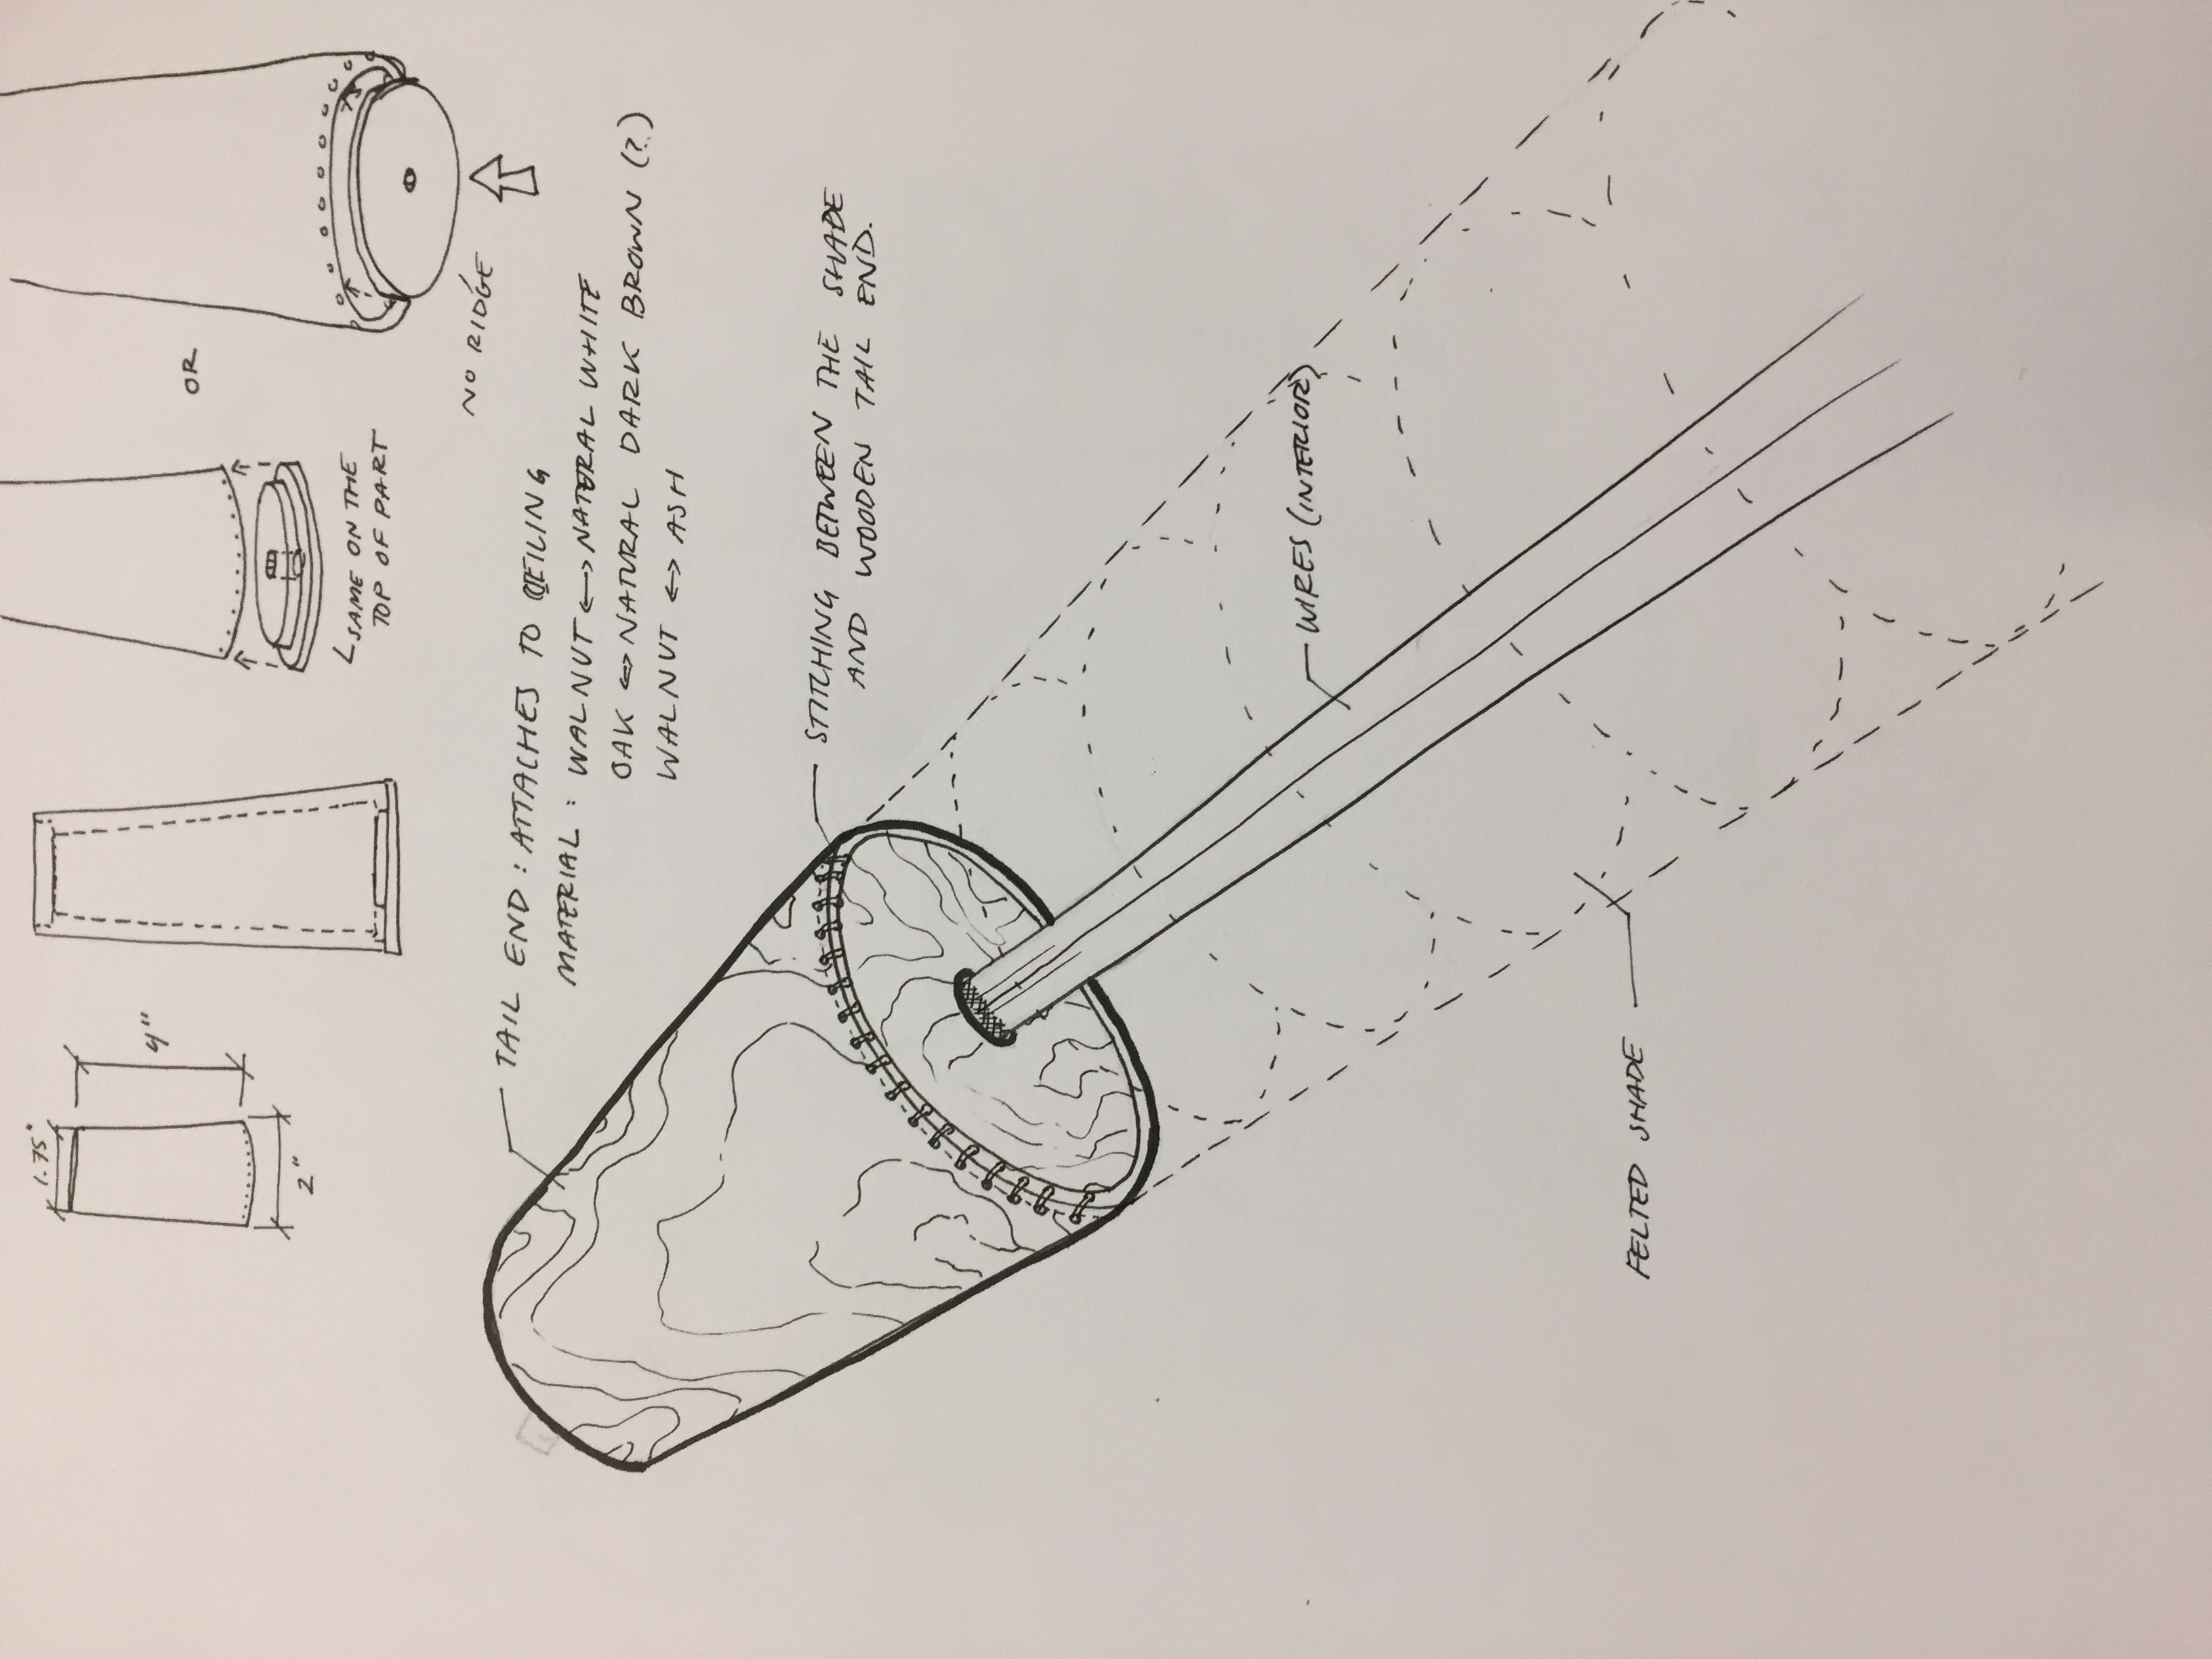 1.75"
4"
2"
OR
SAME ON THE
TOP OF PART
NO RIDGE
TAIL END : ATTACHES TO CEILING
MATERIAL : WALNUT <-> NATERAL WHITE
OAK <-> NATURAL DARK BROWN (?)
WALNUT <-> ASH
STITCHING BETWEEN THE SHADE
AND WOODEN TAIL END.
WIRES (INTERIOR)
FELTED SHADE